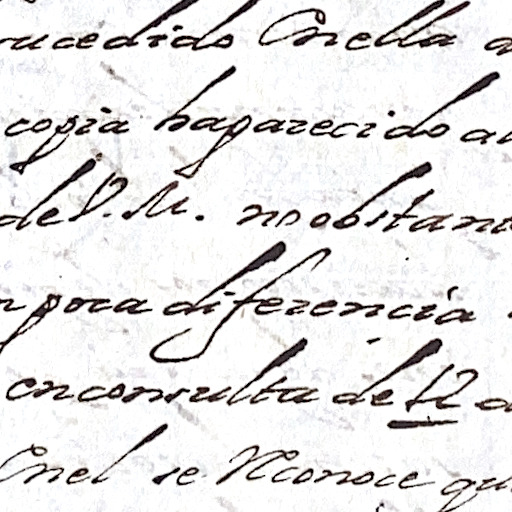 sucedido Enella
copia haparecido
de V. M. no obstan
poca diferencia
enconsulta de 12
Enel se Reconoce qu